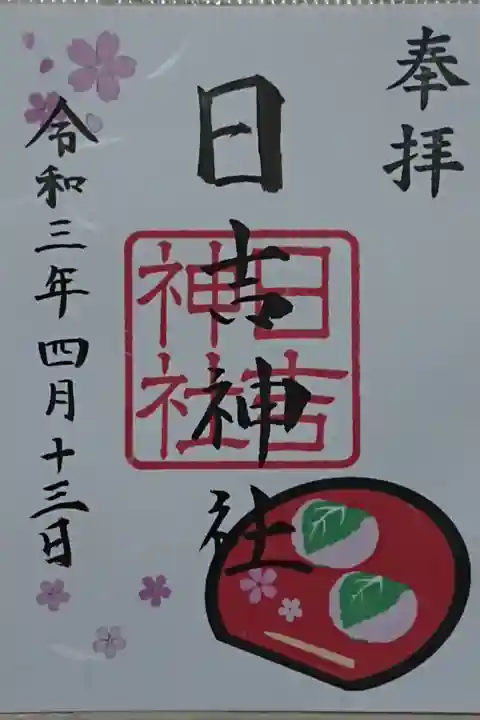 奉拝
日吉神社
日吉神社
令和三年四月十三日